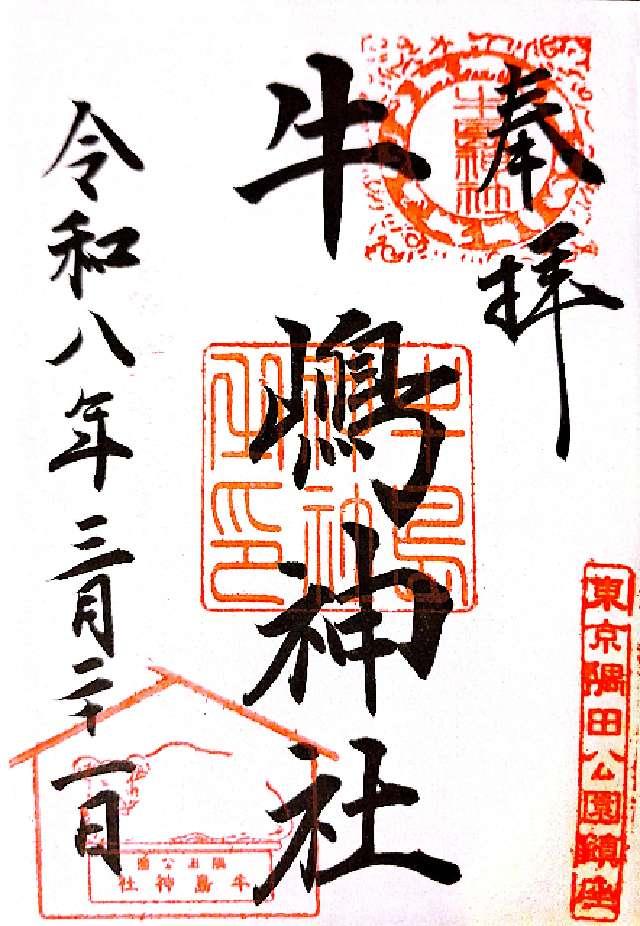 奉拝
東京隅田公園鎮座
牛嶋神社
牛島神社之印
令和八年三月二十一日
隅田公園
牛島神社